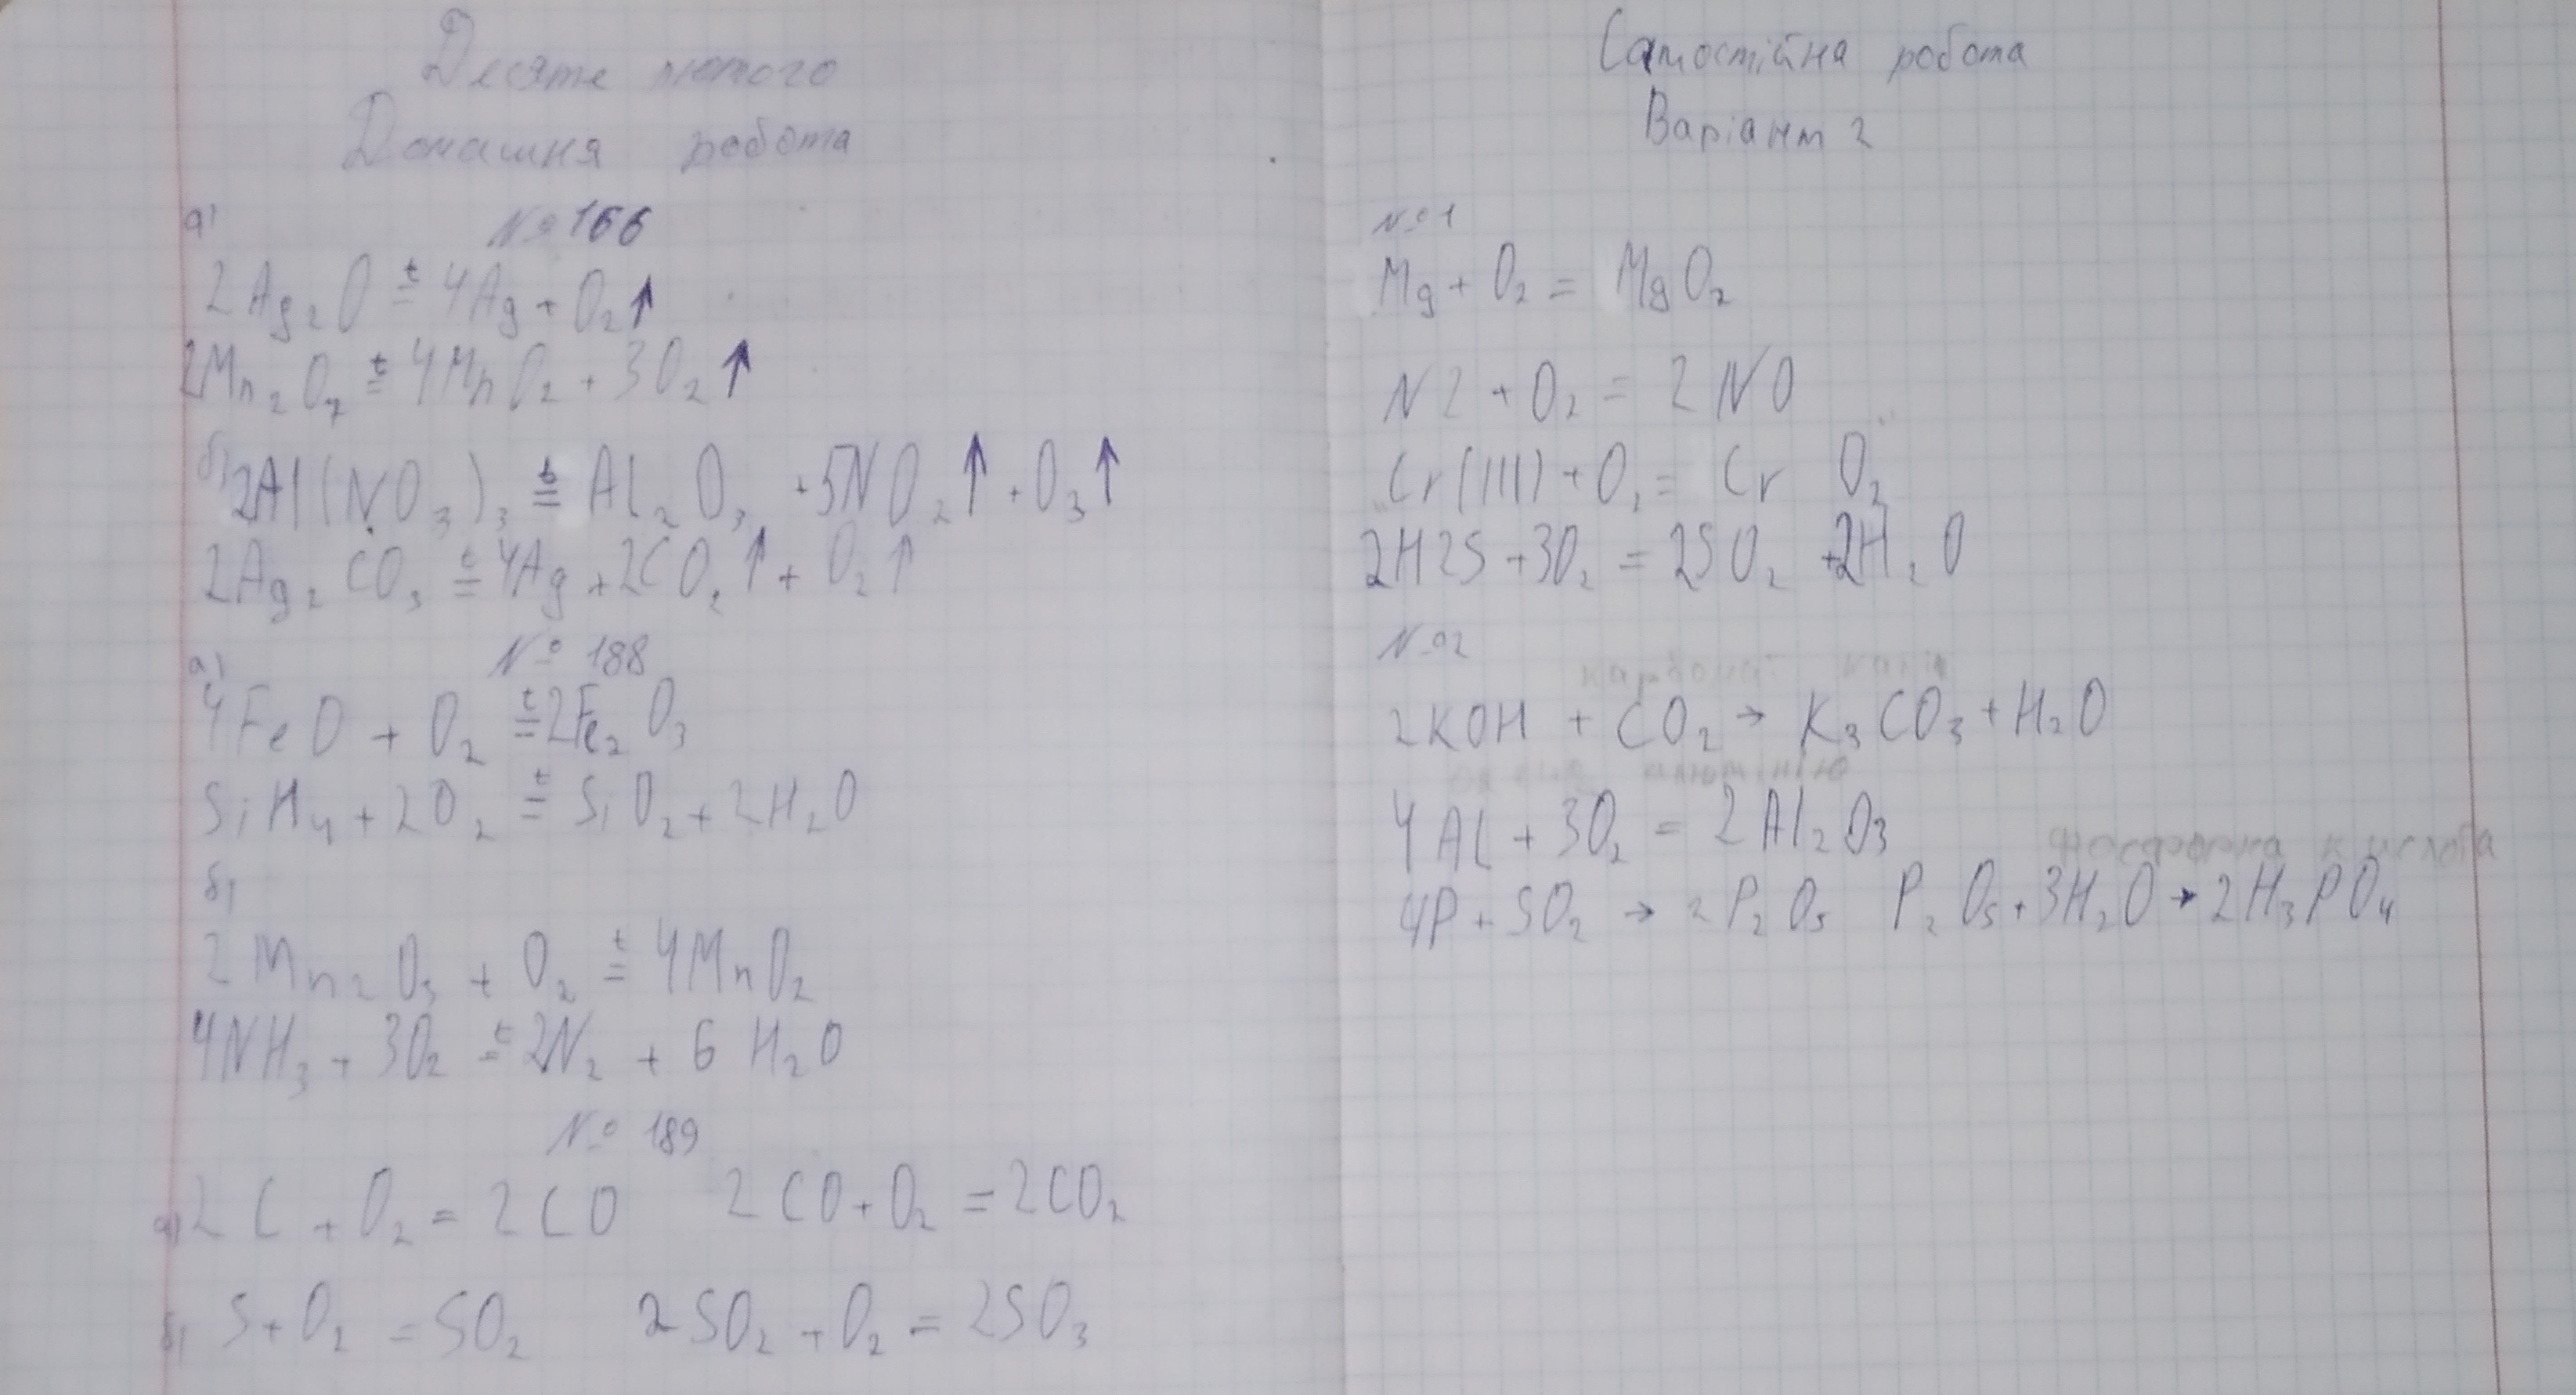 Десяте лютого
Домашня робота
а) № 166
2Ag₂O =ᵗ 4Ag + O₂↑
2Mn₂O₇ =ᵗ 4MnO₂ + 3O₂↑
б) 2Al(NO₃)₃ =ᵗ Al₂O₃ + 5NO₂↑ + O₃↑
2Ag₂CO₃ =ᵗ 4Ag + 2CO₂↑ + O₂↑
а) № 188
4FeO + O₂ =ᵗ 2Fe₂O₃
SiH₄ + 2O₂ =ᵗ SiO₂ + 2H₂O
б)
2Mn₂O₃ + O₂ =ᵗ 4MnO₂
4NH₃ + 3O₂ =ᵗ 2N₂ + 6H₂O
№ 189
а) 2C + O₂ = 2CO 2CO + O₂ = 2CO₂
б) S + O₂ = SO₂ 2SO₂ + O₂ = 2SO₃
Самостійна робота
Варіант 2
№1
Mg + O₂ = MgO₂
N2 + O₂ = 2NO
Cr(III) + O₂ = Cr O₂
2H2S + 3O₂ = 2SO₂ + 2H₂O
№2
карбонат калія
2KOH + CO₂ → K₃CO₃ + H₂O
алюмінію
4Al + 3O₂ = 2Al₂O₃
фосфорна кислота
4P + 5O₂ → 2P₂O₅ P₂O₅ + 3H₂O → 2H₃PO₄